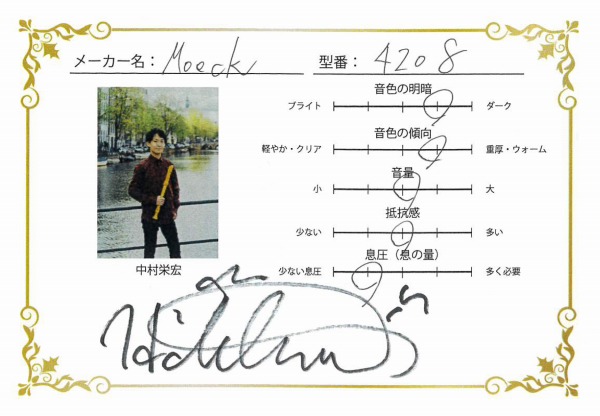 メーカー名： Moeck 型番： 4208
音色の明暗
ブライト ダーク
音色の傾向
軽やか・クリア 重厚・ウォーム
音量
小 大
抵抗感
少ない 多い
息圧（息の量）
少ない息圧 多く必要
中村栄宏